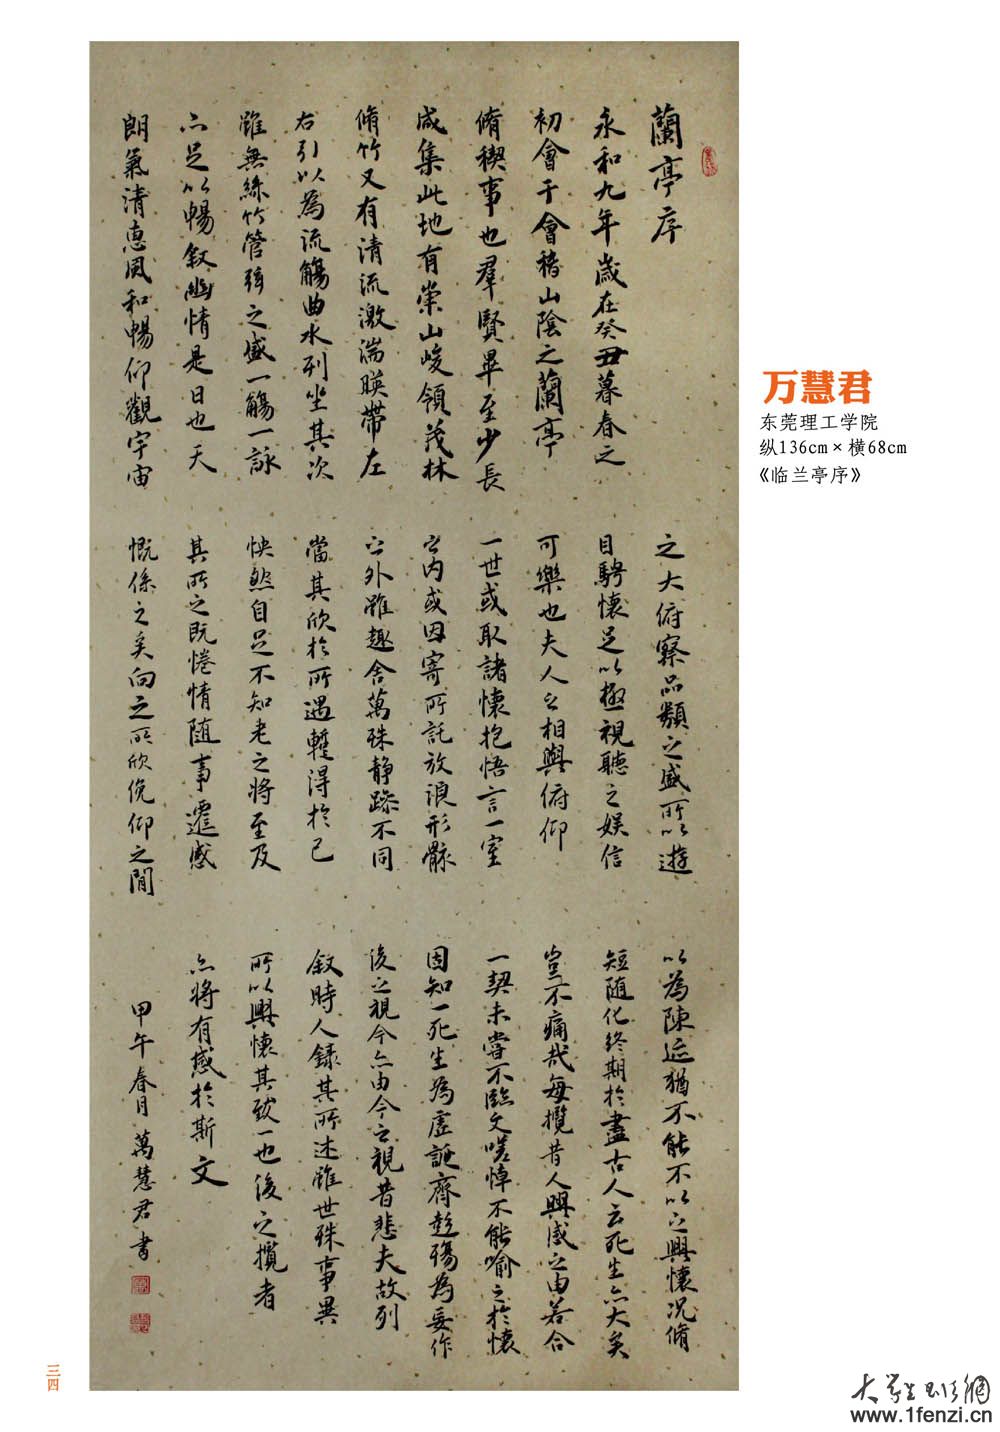 蘭亭序
永和九年歲在癸丑暮春之
初會于會稽山陰之蘭亭
脩稧事也羣賢畢至少長
咸集此地有崇山峻領茂林
脩竹又有清流激湍暎帶左
右引以為流觴曲水列坐其次
雖無絲竹管弦之盛一觴一詠
亦足以暢敘幽情是日也天
朗氣清惠風和暢仰觀宇宙
之大俯察品類之盛所以遊
目騁懷足以極視聽之娛信
可樂也夫人之相與俯仰
一世或取諸懷抱悟言一室
之內或因寄所託放浪形骸
之外雖趣舍萬殊靜躁不同
當其欣於所遇蹔得於己
怏然自足不知老之將至及
其所之既惓情隨事遷感
慨係之矣向之所欣俛仰之閒
以為陳迹猶不能不以之興懷況脩
短隨化終期於盡古人云死生亦大矣
豈不痛哉每攬昔人興感之由若合
一契未嘗不臨文嗟悼不能喻之於懷
固知一死生為虛誕齊彭殤為妄作
後之視今亦由今之視昔悲夫故列
敘時人錄其所述雖世殊事異
所以興懷其致一也後之攬者
亦將有感於斯文
甲午春月萬慧君書
万慧君
东莞理工学院
纵136cm×横68cm
《临兰亭序》
三四
大学生书法網
www.1fenzi.cn